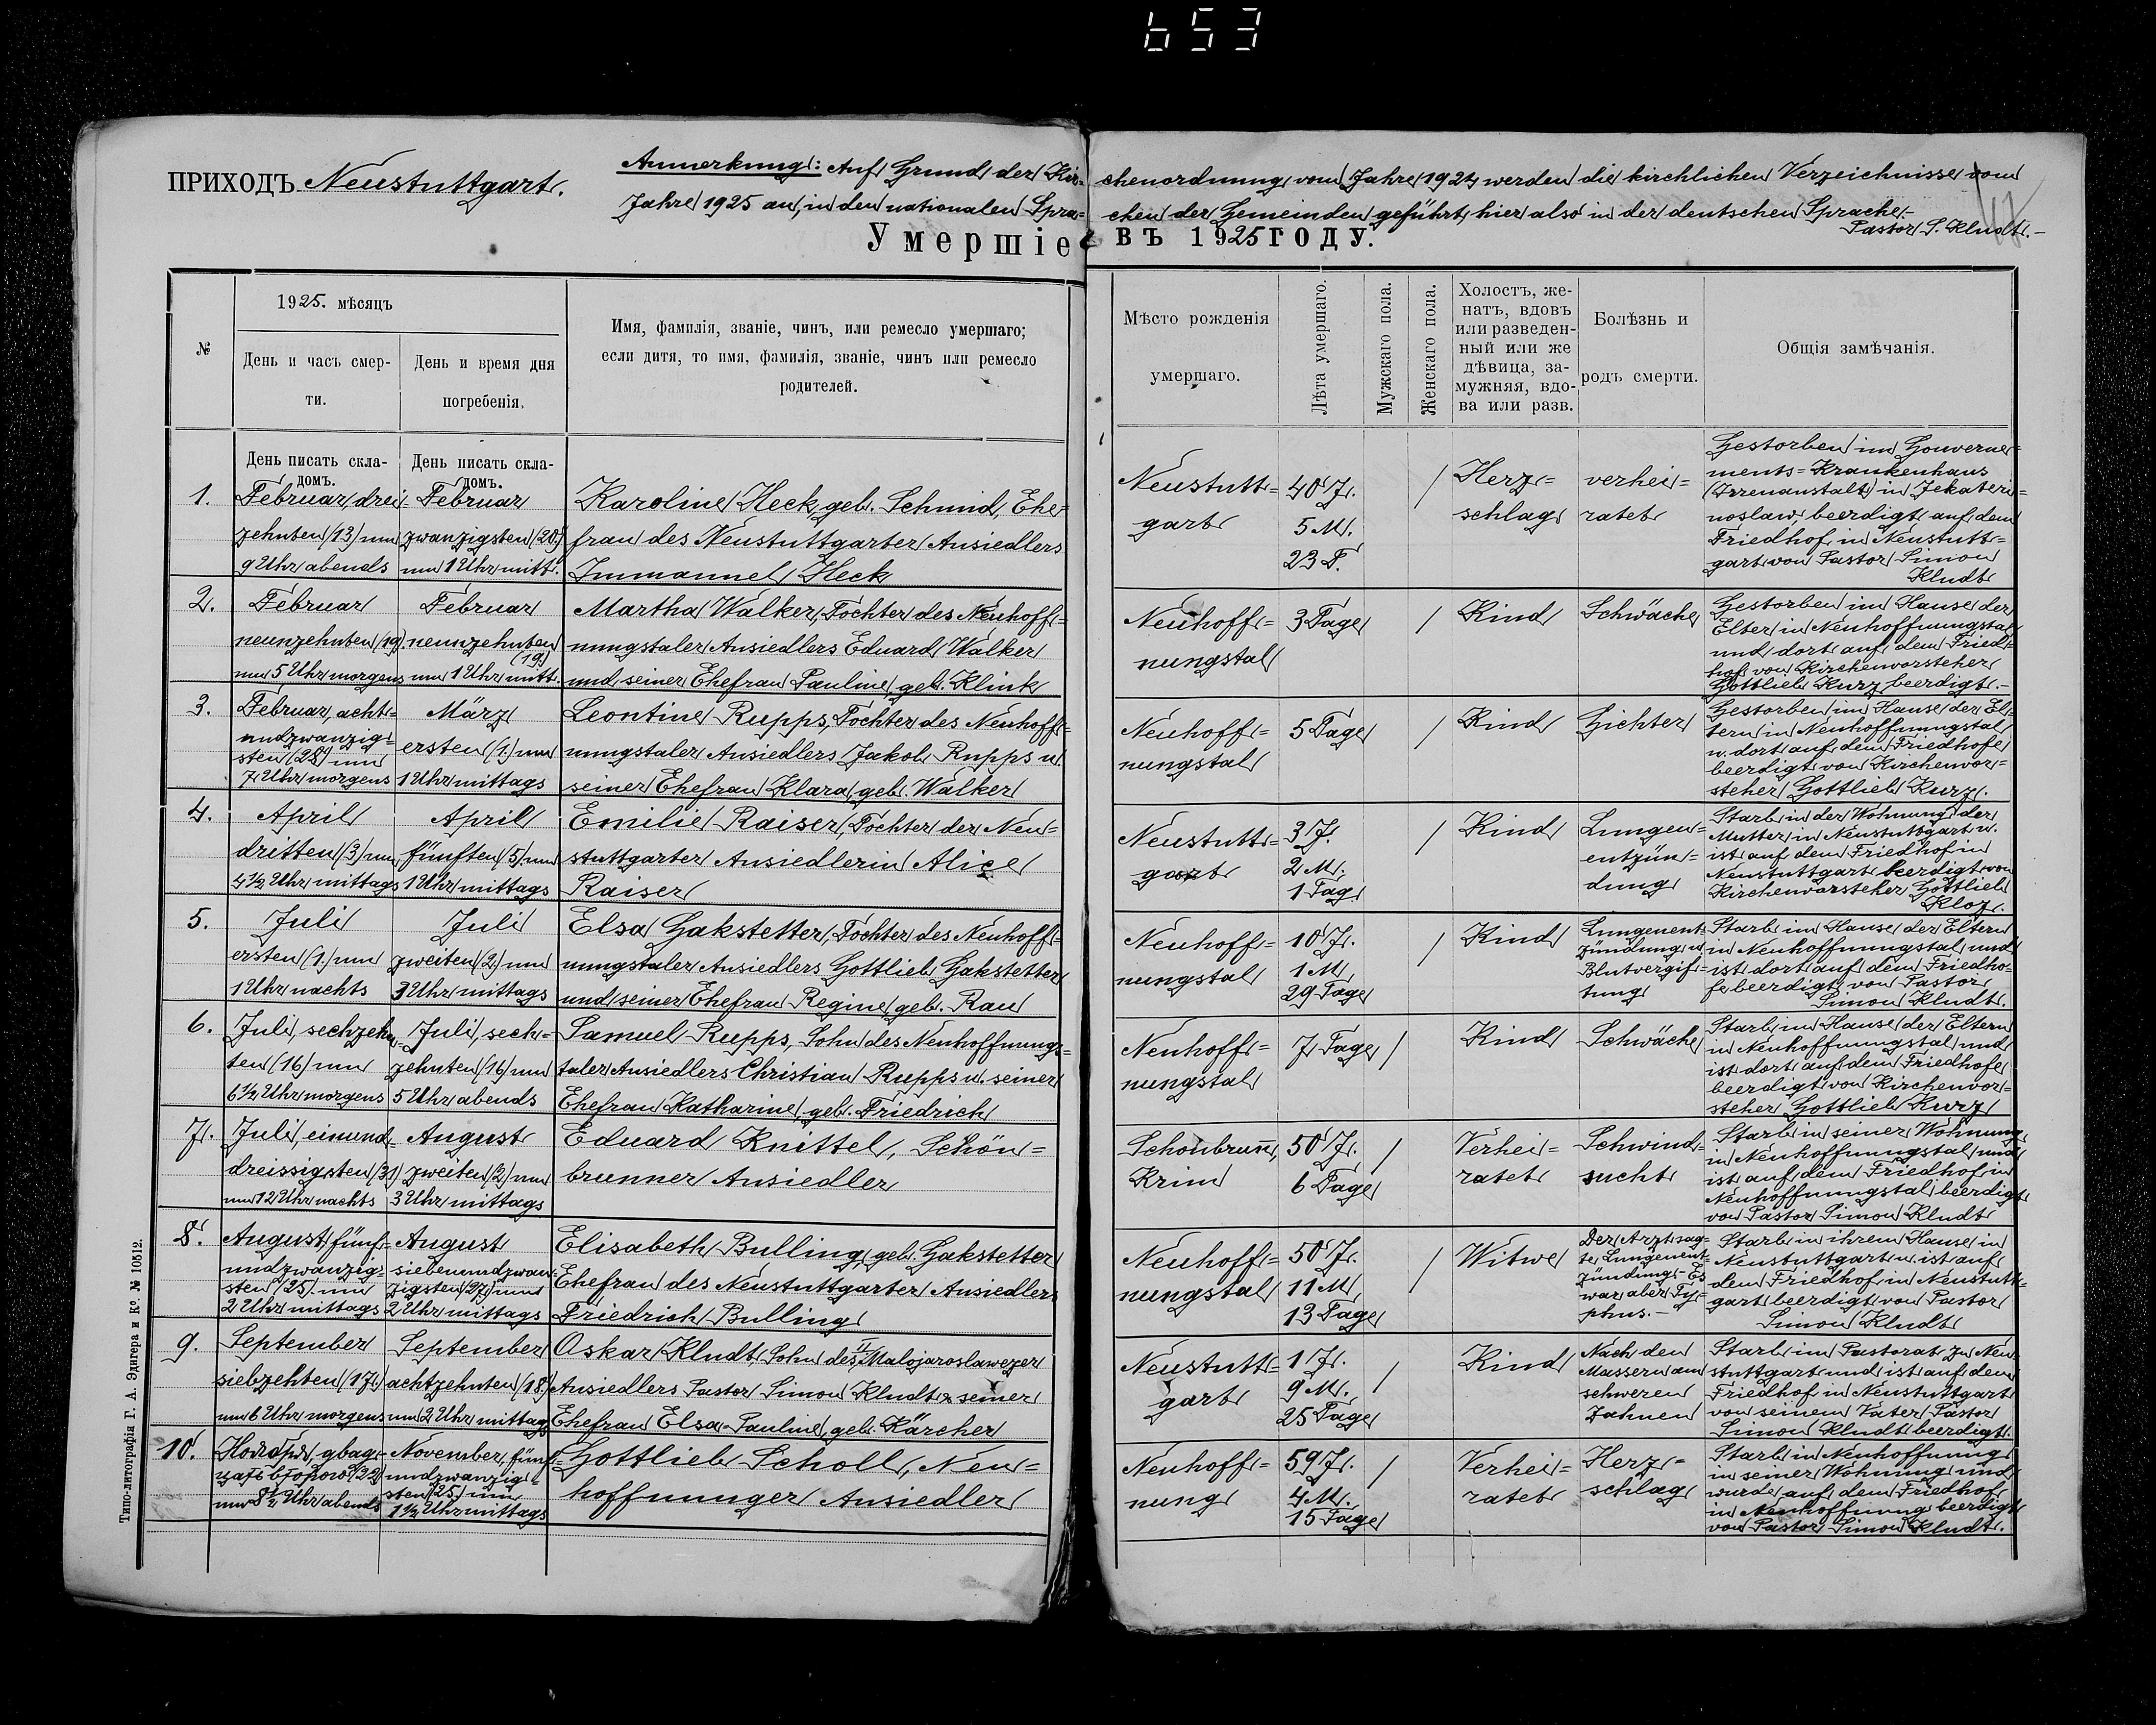 653
ПРИХОДЪ Neustuttgart.
Anmerkung: Auf Grund der Kirchenordnung vom Jahre 1924 werden die kirchlichen Verzeichnisse vom
Jahre 1925 an, in den nationalen Sprachen der Gemeinden geführt, hier also in der deutschen Sprache.-
Pastor S. Kludt.-
Умершіе въ 1925 ГОДУ.
№
1925. мѣсяцъ
День и часъ смерти.
День и время дня погребенія.
Имя, фамилія, званіе, чинъ, или ремесло умершаго;
если дитя, то имя, фамилія, званіе, чинъ или ремесло
родителей.
Мѣсто рожденія
умершаго.
Лѣта умершаго.
Мужскаго пола.
Женскаго пола.
Холостъ, же-
натъ, вдовъ
или разведен-
ный или же
дѣвица, за-
мужняя, вдо-
ва или разв.
Болѣзнь и
родъ смерти.
Общія замѣчанія.
День писать скла-
домъ.
День писать скла-
домъ.
1.
Februar, drei-
zehnten (13) um
9 Uhr abends
Februar
zwanzigsten (20.)
um 1 Uhr mitt.
Karoline Heck, geb. Schmid, Ehe-
frau des Neustuttgarter Ansiedlers
Immanuel Heck
Neustutt-
gart
40 J.
5 M.
23 T.
/
Herz-
schlag
verhei-
ratet
Gestorben im Gouverne-
ments-Krankenhaus
(Irrenanstalt) in Jekateri-
noslaw, beerdigt auf dem
Friedhof in Neustutt-
gart von Pastor Simon
Kludt
2.
Februar
neunzehnten (19)
um 5 Uhr morgens
Februar
neunzehnten
(19)
um 1 Uhr mitt.
Martha Walker, Tochter des Neuhoff-
nungstaler Ansiedlers Eduard Walker
und seiner Ehefrau Pauline, geb. Klink
Neuhoff-
nungstal
3 Tage
/
Kind
Schwäche
Gestorben im Hause der
Elter in Neuhoffnungstal
und dort auf dem Fried-
hof von Kirchenvorsteher
Gottlieb Kurz beerdigt.-
3.
Februar, acht-
undzwanzig-
sten (28) um
7 Uhr morgens
März
ersten (1.) um
1 Uhr mittags
Leontine Rupps, Tochter des Neuhoff-
nungstaler Ansiedlers Jakob Rupps u.
seiner Ehefrau Klara, geb. Walker
Neuhoff-
nungstal
5 Tage
/
Kind
Gichter
Gestorben im Hause der El-
tern in Neuhoffnungstal
u. dort auf dem Friedhofe
beerdigt von Kirchenvor-
steher Gottlieb Kurz.
4.
April
dritten (3) um
4 1/2 Uhr mittags
April
fünften (5) um
1 Uhr mittags
Emilie Raiser, Tochter der Neu-
stuttgarter Ansiedlerin Alice
Raiser
Neustutt-
gart
3 J.
2 M.
1 Tag
/
Kind
Lungen-
entzün-
dung
Starb in der Wohnung der
Mutter in Neustuttgart u.
ist auf dem Friedhof in
Neustuttgart beerdigt von
Kirchenvorsteher Gottlieb
Kloz.
5.
Juli
ersten (1.) um
1 Uhr nachts
Juli
zweiten (2.) um
3 Uhr mittags
Elsa Gakstetter, Tochter des Neuhoff-
nungstaler Ansiedlers Gottlieb Gakstetter
und seiner Ehefrau Regine, geb. Rau
Neuhoff-
nungstal
10 J.
1 M.
29 Tage
/
Kind
Lungenent-
zündung u.
Blutvergif-
tung
Starb im Hause der Eltern
in Neuhoffnungstal und
ist dort auf dem Friedho-
fe beerdigt von Pastor
Simon Kludt.
6.
Juli, sechzehn-
ten (16) um
6 1/2 Uhr morgens
Juli, sech-
zehnten (16) um
5 Uhr abends
Samuel Rupps, Sohn des Neuhoffnungs-
taler Ansiedlers Christian Rupps u. seiner
Ehefrau Katharine, geb. Friedrich
Neuhoff-
nungstal
7 Tage
/
Kind
Schwäche
Starb im Hause der Eltern
in Neuhoffnungstal und
ist dort auf dem Friedhofe
beerdigt von Kirchenvor-
steher Gottlieb Kurz
7.
Juli, einund-
dreissigsten (31)
um 12 Uhr nachts
August
zweiten (2.) um
3 Uhr mittags
Eduard Knittel, Schön-
brunner Ansiedler
Schönbrunn,
Krim
50 J.
6 Tage
/
Verhei-
ratet
Schwind-
sucht
Starb in seiner Wohnung
in Neuhoffnungstal und
ist auf dem Friedhof in
Neuhoffnungstal beerdigt
von Pastor Simon Kludt
8.
August, fünf-
undzwanzig-
sten (25) um
2 Uhr mittags
August
siebenundzwan-
zigsten (27.) um
2 Uhr mittags
Elisabeth Bulling, geb. Gakstetter
Ehefrau des Neustuttgarter Ansiedlers
Friedrich Bulling
Neuhoff-
nungstal
50 J.
11 M.
13 Tage
/
Witwe
Der Arzt sag-
te, Lungenent-
zündung - Es
war aber Ty-
phus.-
Starb in ihrem Hause in
Neustuttgart u. ist auf
dem Friedhof in Neustutt-
gart beerdigt von Pastor
Simon Kludt
9.
September
siebzehten (17.)
um 6 Uhr morgens
September
achtzehnten (18.)
um 2 Uhr mittags
Oskar Kludt, Sohn des II Malojaroslawezer
Ansiedlers Pastor Simon Kludt & seiner
Ehefrau Elsa-Pauline, geb. Kärcher
Neustutt-
gart
1 J.
9 M.
25 Tage
/
Kind
Nach den
Massern am
schweren
Zahnen
Starb im Pastorat zu Neu-
stuttgart und ist auf dem
Friedhof in Neustuttgart
von seinem Vater Pastor
Simon Kludt beerdigt.
10.
Ноября, двад-
цать второго (22)
um 8 1/2 Uhr abends
November, fünf-
undzwanzig-
sten (25.) um
1 1/2 Uhr mittags
Gottlieb Scholl, Neu-
hoffnunger Ansiedler
Neuhoff-
nung
59 J.
4 M.
15 Tage
/
Verhei-
ratet
Herz-
schlag
Starb in Neuhoffnung
in seiner Wohnung und
wurde auf dem Friedhof
in Neuhoffnung beerdigt
von Pastor Simon Kludt.
Типо-литографія Г. А. Эдигера и Ко. № 10512.